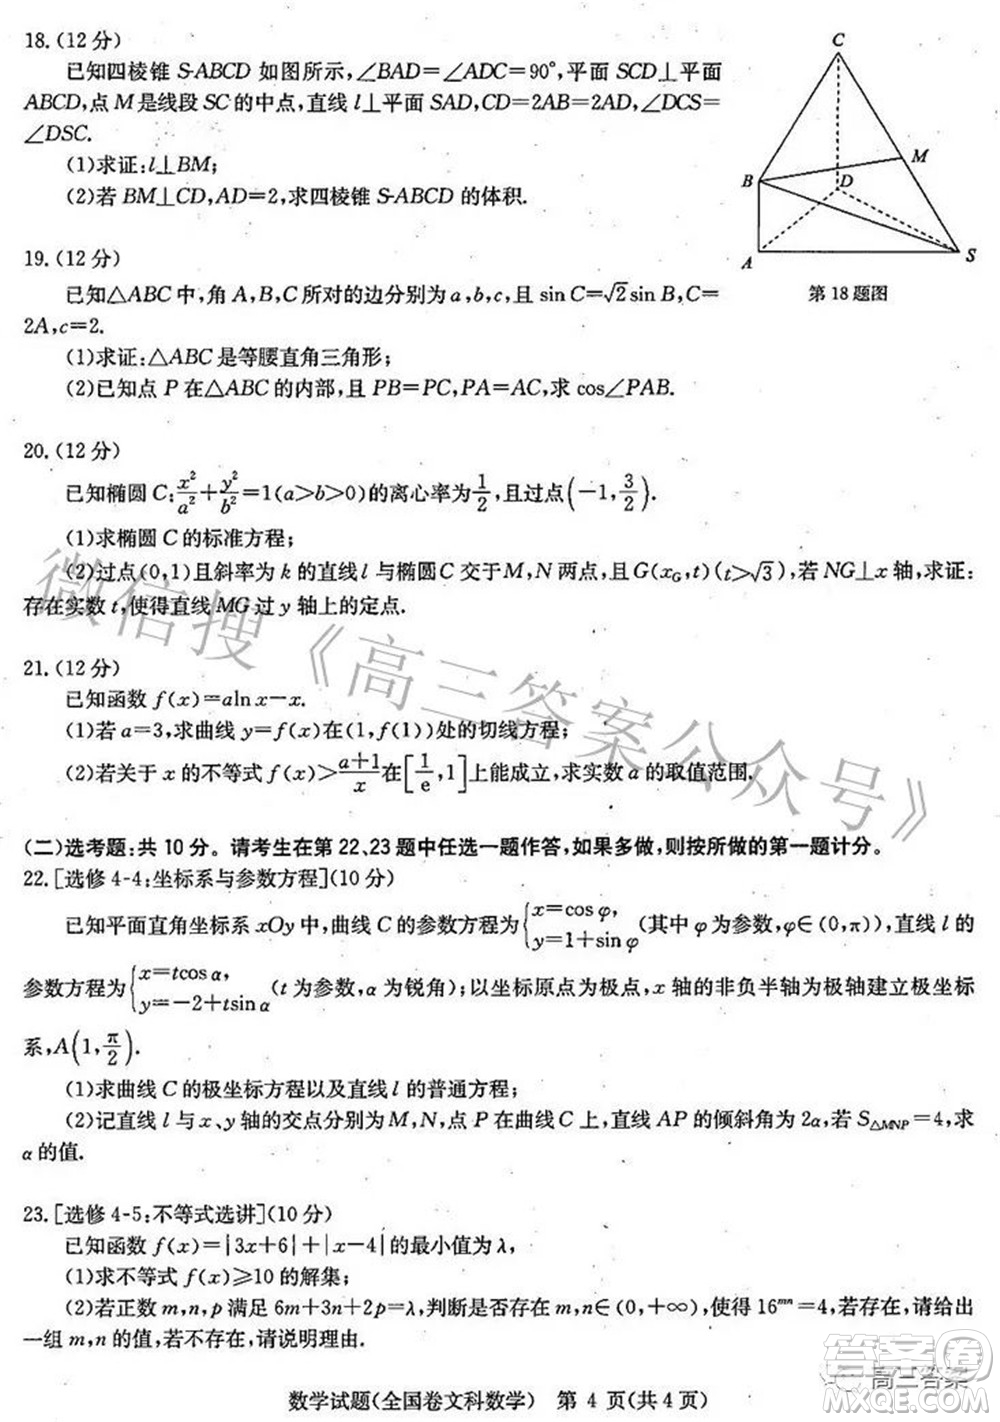 18.(12分)
已知四棱锥 S-ABCD 如图所示,∠BAD=∠ADC=90°,平面 SCD⊥平面
ABCD,点 M 是线段 SC 的中点,直线 l⊥平面 SAD,CD=2AB=2AD,∠DCS=
∠DSC.
(1)求证:l⊥BM;
(2)若 BM⊥CD,AD=2,求四棱锥 S-ABCD 的体积.
C
M
B
D
A
S
第18题图
19.(12分)
已知△ABC 中,角 A,B,C 所对的边分别为 a,b,c,且 sin C=√2 sin B,C=
2A,c=2.
(1)求证:△ABC 是等腰直角三角形;
(2)已知点 P 在△ABC 的内部,且 PB=PC,PA=AC,求 cos∠PAB.
20.(12分)
已知椭圆 C:x²/a²+y²/b²=1(a>b>0)的离心率为1/2,且过点(-1,3/2).
(1)求椭圆 C 的标准方程;
(2)过点(0,1)且斜率为 k 的直线 l 与椭圆 C 交于 M,N 两点,且 G(x_G,t)(t>√3),若 NG⊥x 轴,求证:
存在实数 t,使得直线 MG 过 y 轴上的定点.
21.(12分)
已知函数 f(x)=aln x-x.
(1)若 a=3,求曲线 y=f(x)在(1,f(1))处的切线方程;
(2)若关于 x 的不等式 f(x)>(a+1)/x 在[1/e,1]上能成立,求实数 a 的取值范围.
(二)选考题:共 10 分。请考生在第 22、23 题中任选一题作答,如果多做,则按所做的第一题计分。
22.[选修 4-4:坐标系与参数方程](10分)
已知平面直角坐标系 xOy 中,曲线 C 的参数方程为{x=cos φ, y=1+sin φ (其中 φ 为参数,φ∈(0,π)),直线 l 的
参数方程为{x=tcos α, y=-2+tsin α (t 为参数,α 为锐角);以坐标原点为极点,x 轴的非负半轴为极轴建立极坐标
系,A(1,π/2).
(1)求曲线 C 的极坐标方程以及直线 l 的普通方程;
(2)记直线 l 与 x、y 轴的交点分别为 M,N,点 P 在曲线 C 上,直线 AP 的倾斜角为 2α,若 S△MNP=4,求
α 的值.
23.[选修 4-5:不等式选讲](10分)
已知函数 f(x)=|3x+6|+|x-4|的最小值为 λ,
(1)求不等式 f(x)≥10 的解集;
(2)若正数 m,n,p 满足 6m+3n+2p=λ,判断是否存在 m,n∈(0,+∞),使得 16^{mn}=4,若存在,请给出
一组 m,n 的值,若不存在,请说明理由.
数学试题(全国卷文科数学) 第 4 页(共 4 页)
微信搜《高三答案公众号》
高三答案